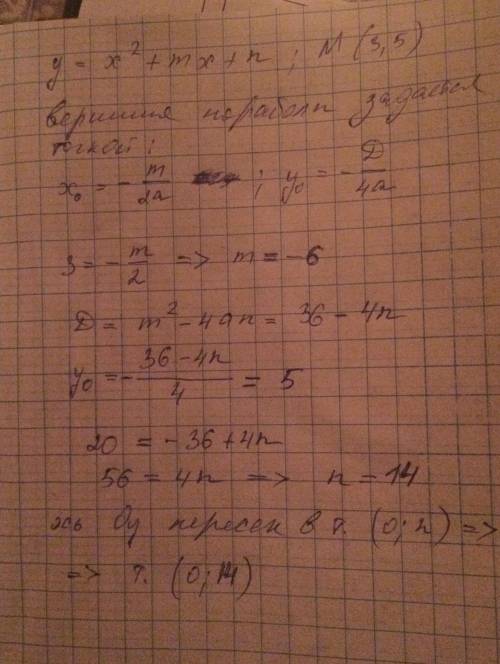 y = x² + mx + n ; M (3,5)
вершина параболи задається
точкой :
x₀ = - m/2a ; y₀ = - D/4a
3 = - m/2 => m = -6
D = m² - 4an = 36 - 4n
y₀ = - (36 - 4n)/4 = 5
20 = -36 + 4n
56 = 4n => n = 14
ось Oy пересек в т. (0; n) =>
=> т. (0; 14)